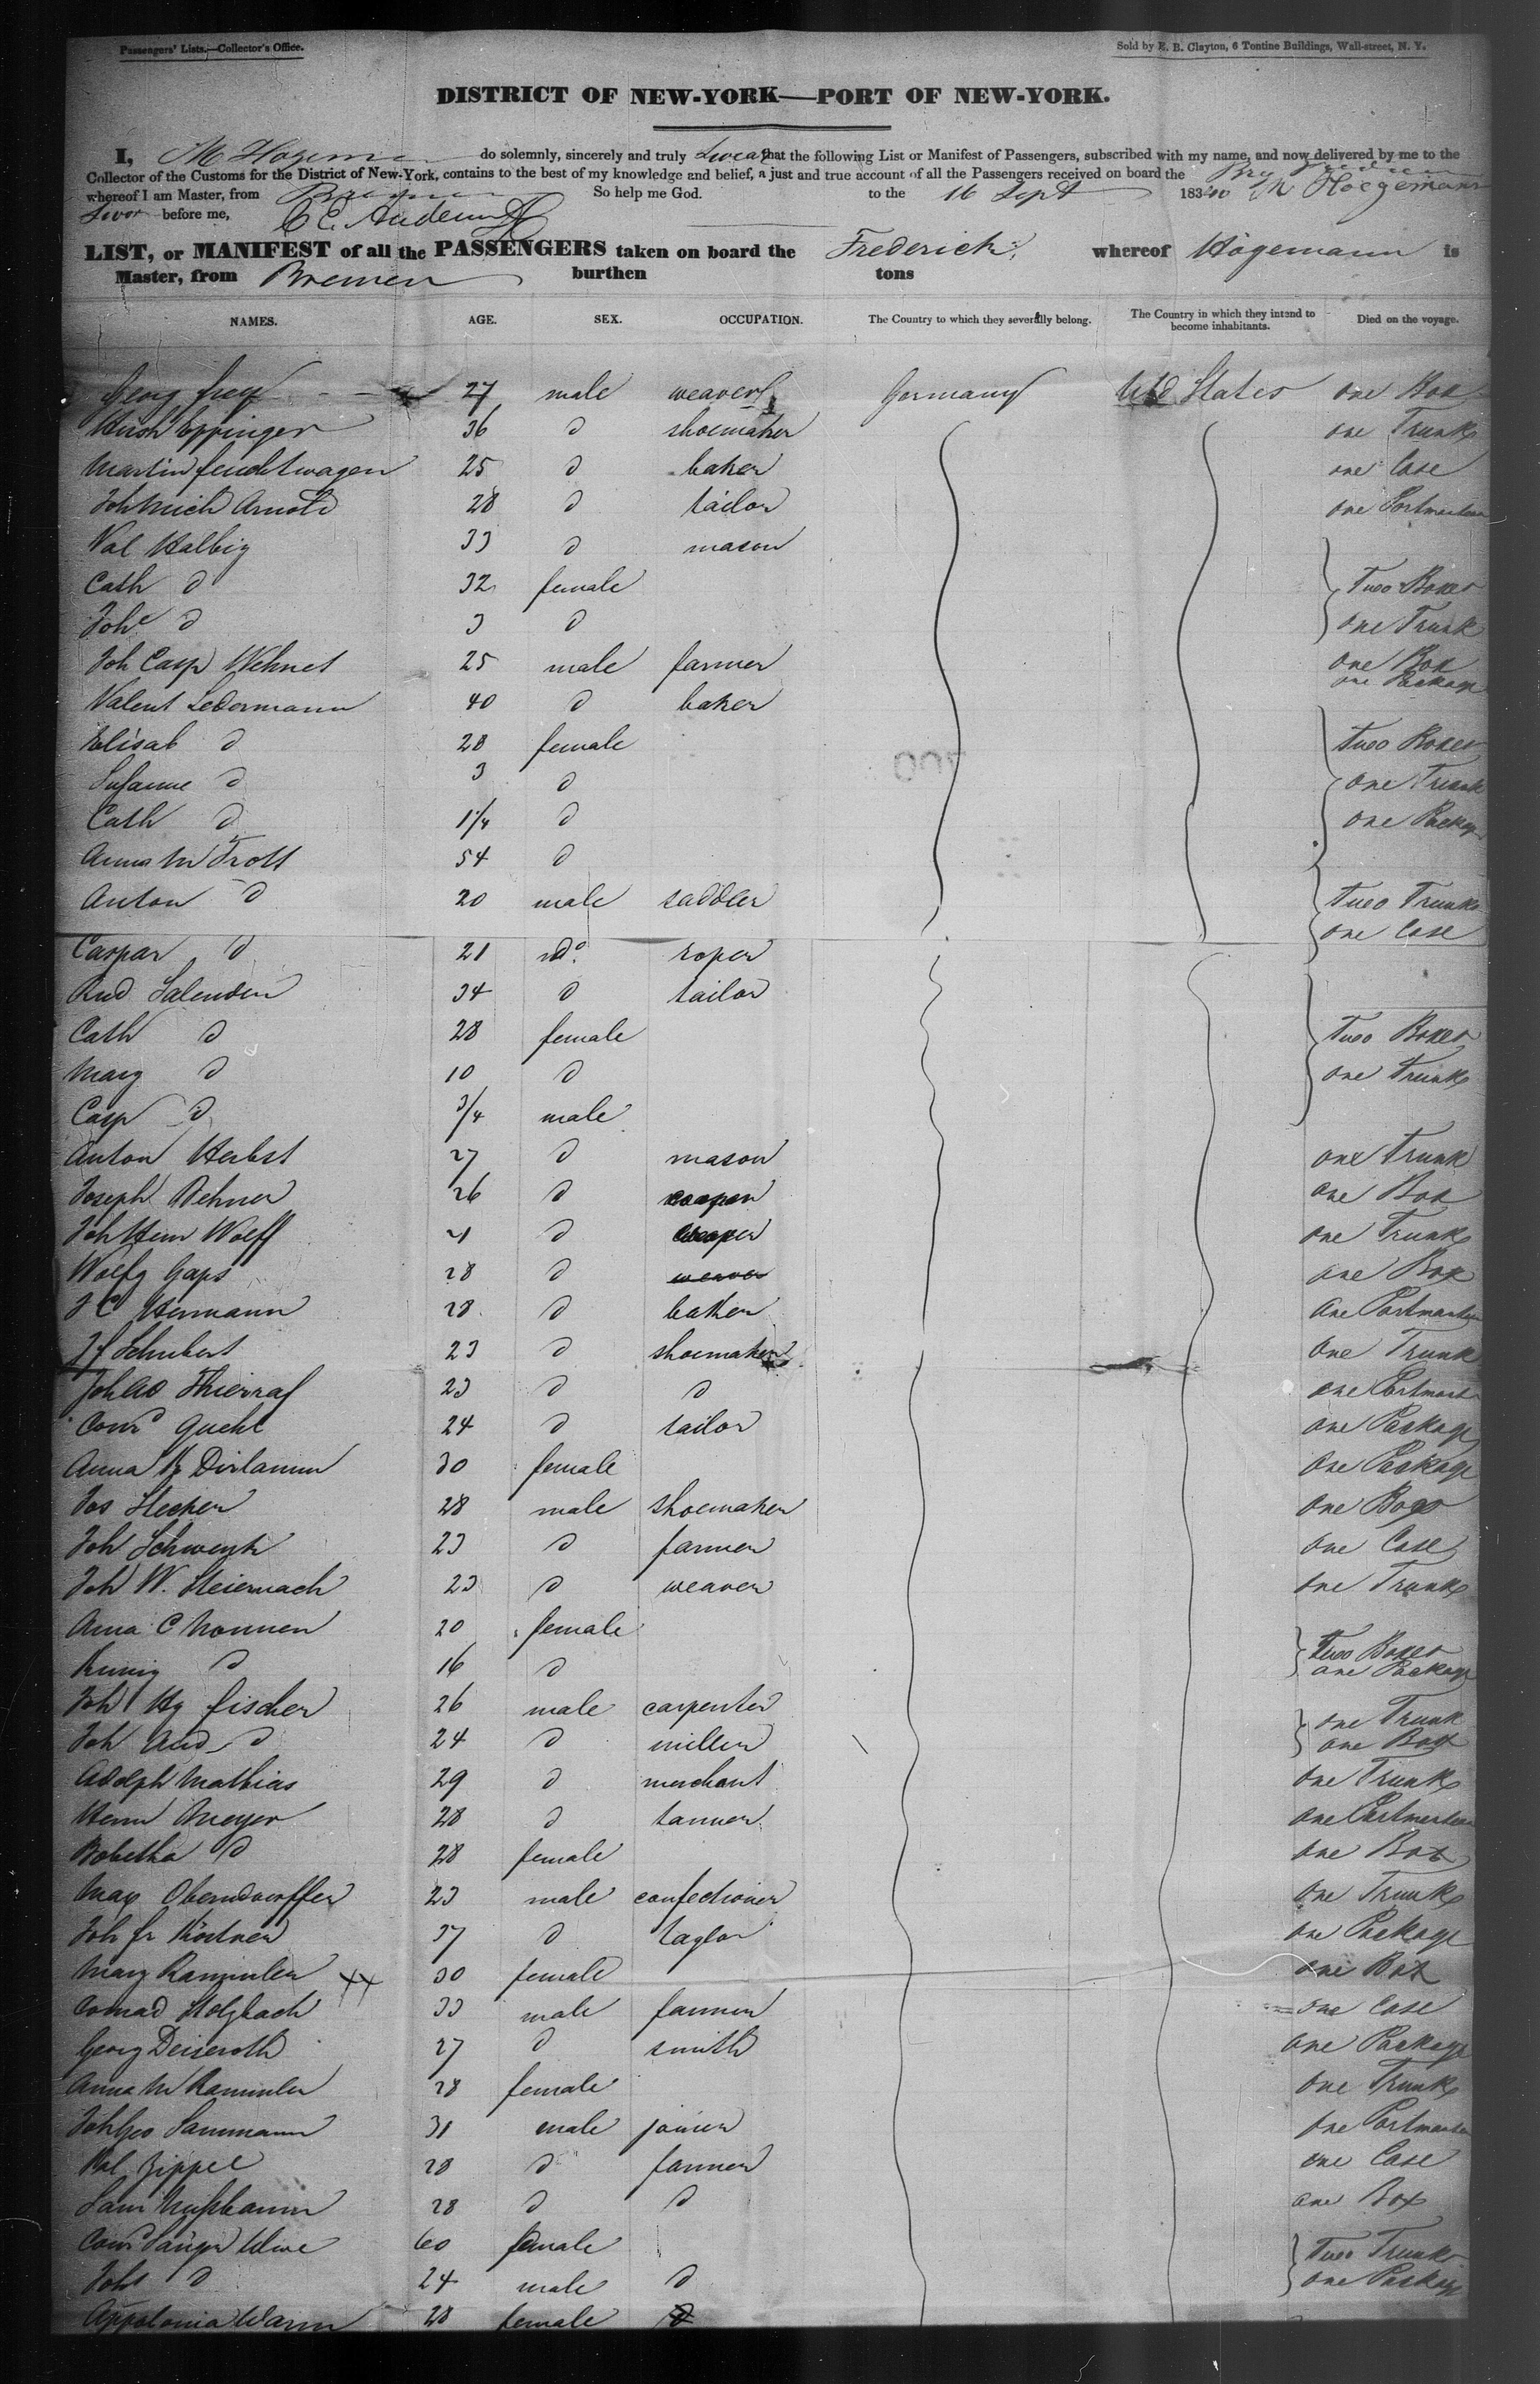 Passengers' Lists.—Collector's Office.
Sold by E. B. Clayton, 6 Tontine Buildings, Wall-street, N. Y.
DISTRICT OF NEW-YORK—PORT OF NEW-YORK.
I, M Hogeman do solemnly, sincerely and truly Swear that the following List or Manifest of Passengers, subscribed with my name, and now delivered by me to the
Collector of the Customs for the District of New-York, contains to the best of my knowledge and belief, a just and true account of all the Passengers received on board the Brig
whereof I am Master, from Bremen So help me God. to the 16 Sept 1840 M Hoegemann
Swor before me, C E. Anderson
LIST, or MANIFEST of all the PASSENGERS taken on board the Frederich, whereof Högemann is
Master, from Bremen burthen tons
NAMES. AGE. SEX. OCCUPATION. The Country to which they severally belong. The Country in which they intend to become inhabitants. Died on the voyage.
Georg frey 27 male weaver Germany Utd States one Box
Hirsh Eppinger 36 d shoemaker one Trunk
Martin feuchtwagen 25 d baker one Case
Joh Mich Arnold 28 d tailor one Portmanteau
Val Halbig 33 d mason
Cath d 32 female Two Boxes
Joh d 3 d one Trunk
Joh Casp Wehnet 25 male farmer one Box
one Package
Valent Ledermann 40 d baker
Elisab d 28 female two Boxes
Susanne d 3 d one Trunk
Cath d 1/4 d one Package
Anna M Trott 54 d
Anton d 20 male saddler two Trunks
one Case
Caspar d 21 do. roper
And Salender 34 d tailor
Cath d 28 female Two Boxes
Marg d 10 d one Trunk
Casp d 3/4 male
Anton Herbst 27 d mason one Trunk
Joseph Dehner 26 d cooper one Box
Joh Hein Wolff 21 d cooper one Trunk
Wolfg Gaps 28 d weaver one Box
J C Hermann 28 d baker one Portmanteau
J f Schubert 23 d shoemaker one Trunk
Joh Ad Thierraf 23 d d one Portmant
Conr Guehl 24 d tailor one Package
Anna K Dirlamm 30 female one Package
Jos Stecher 28 male shoemaker one Box
Joh Schwenk 23 d farmer one Case
Joh W. Steiermach 23 d weaver one Trunk
Anna C Nonnen 20 female two Boxes
Kunig d 16 d one Package
Joh Hg fischer 26 male carpenter one Trunk
Joh And d 24 d miller one Box
Adolph Mathias 29 d merchant one Trunk
Herm Meyer 28 d tanner one Portmanteau
Babetha d 28 female one Box
Max Oberndoerffer 23 male confectioner one Trunk
Joh fr Köstner 37 d taylor one Package
Marg Rammler 30 female one Box
Conrad Stolzbach 33 male farmer one Case
Georg Deiseroth 27 d smith one Package
Anna M Rammler 28 female one Trunk
Joh Geo Sammann 31 male joiner one Portmanteau
Val Zippel 28 d farmer one Case
Sam Nußbaum 28 d d one Box
Conr Sänger Wwe 60 female Two Trunks
Joh d 24 male d one Package
Appolonia Warm 28 female d